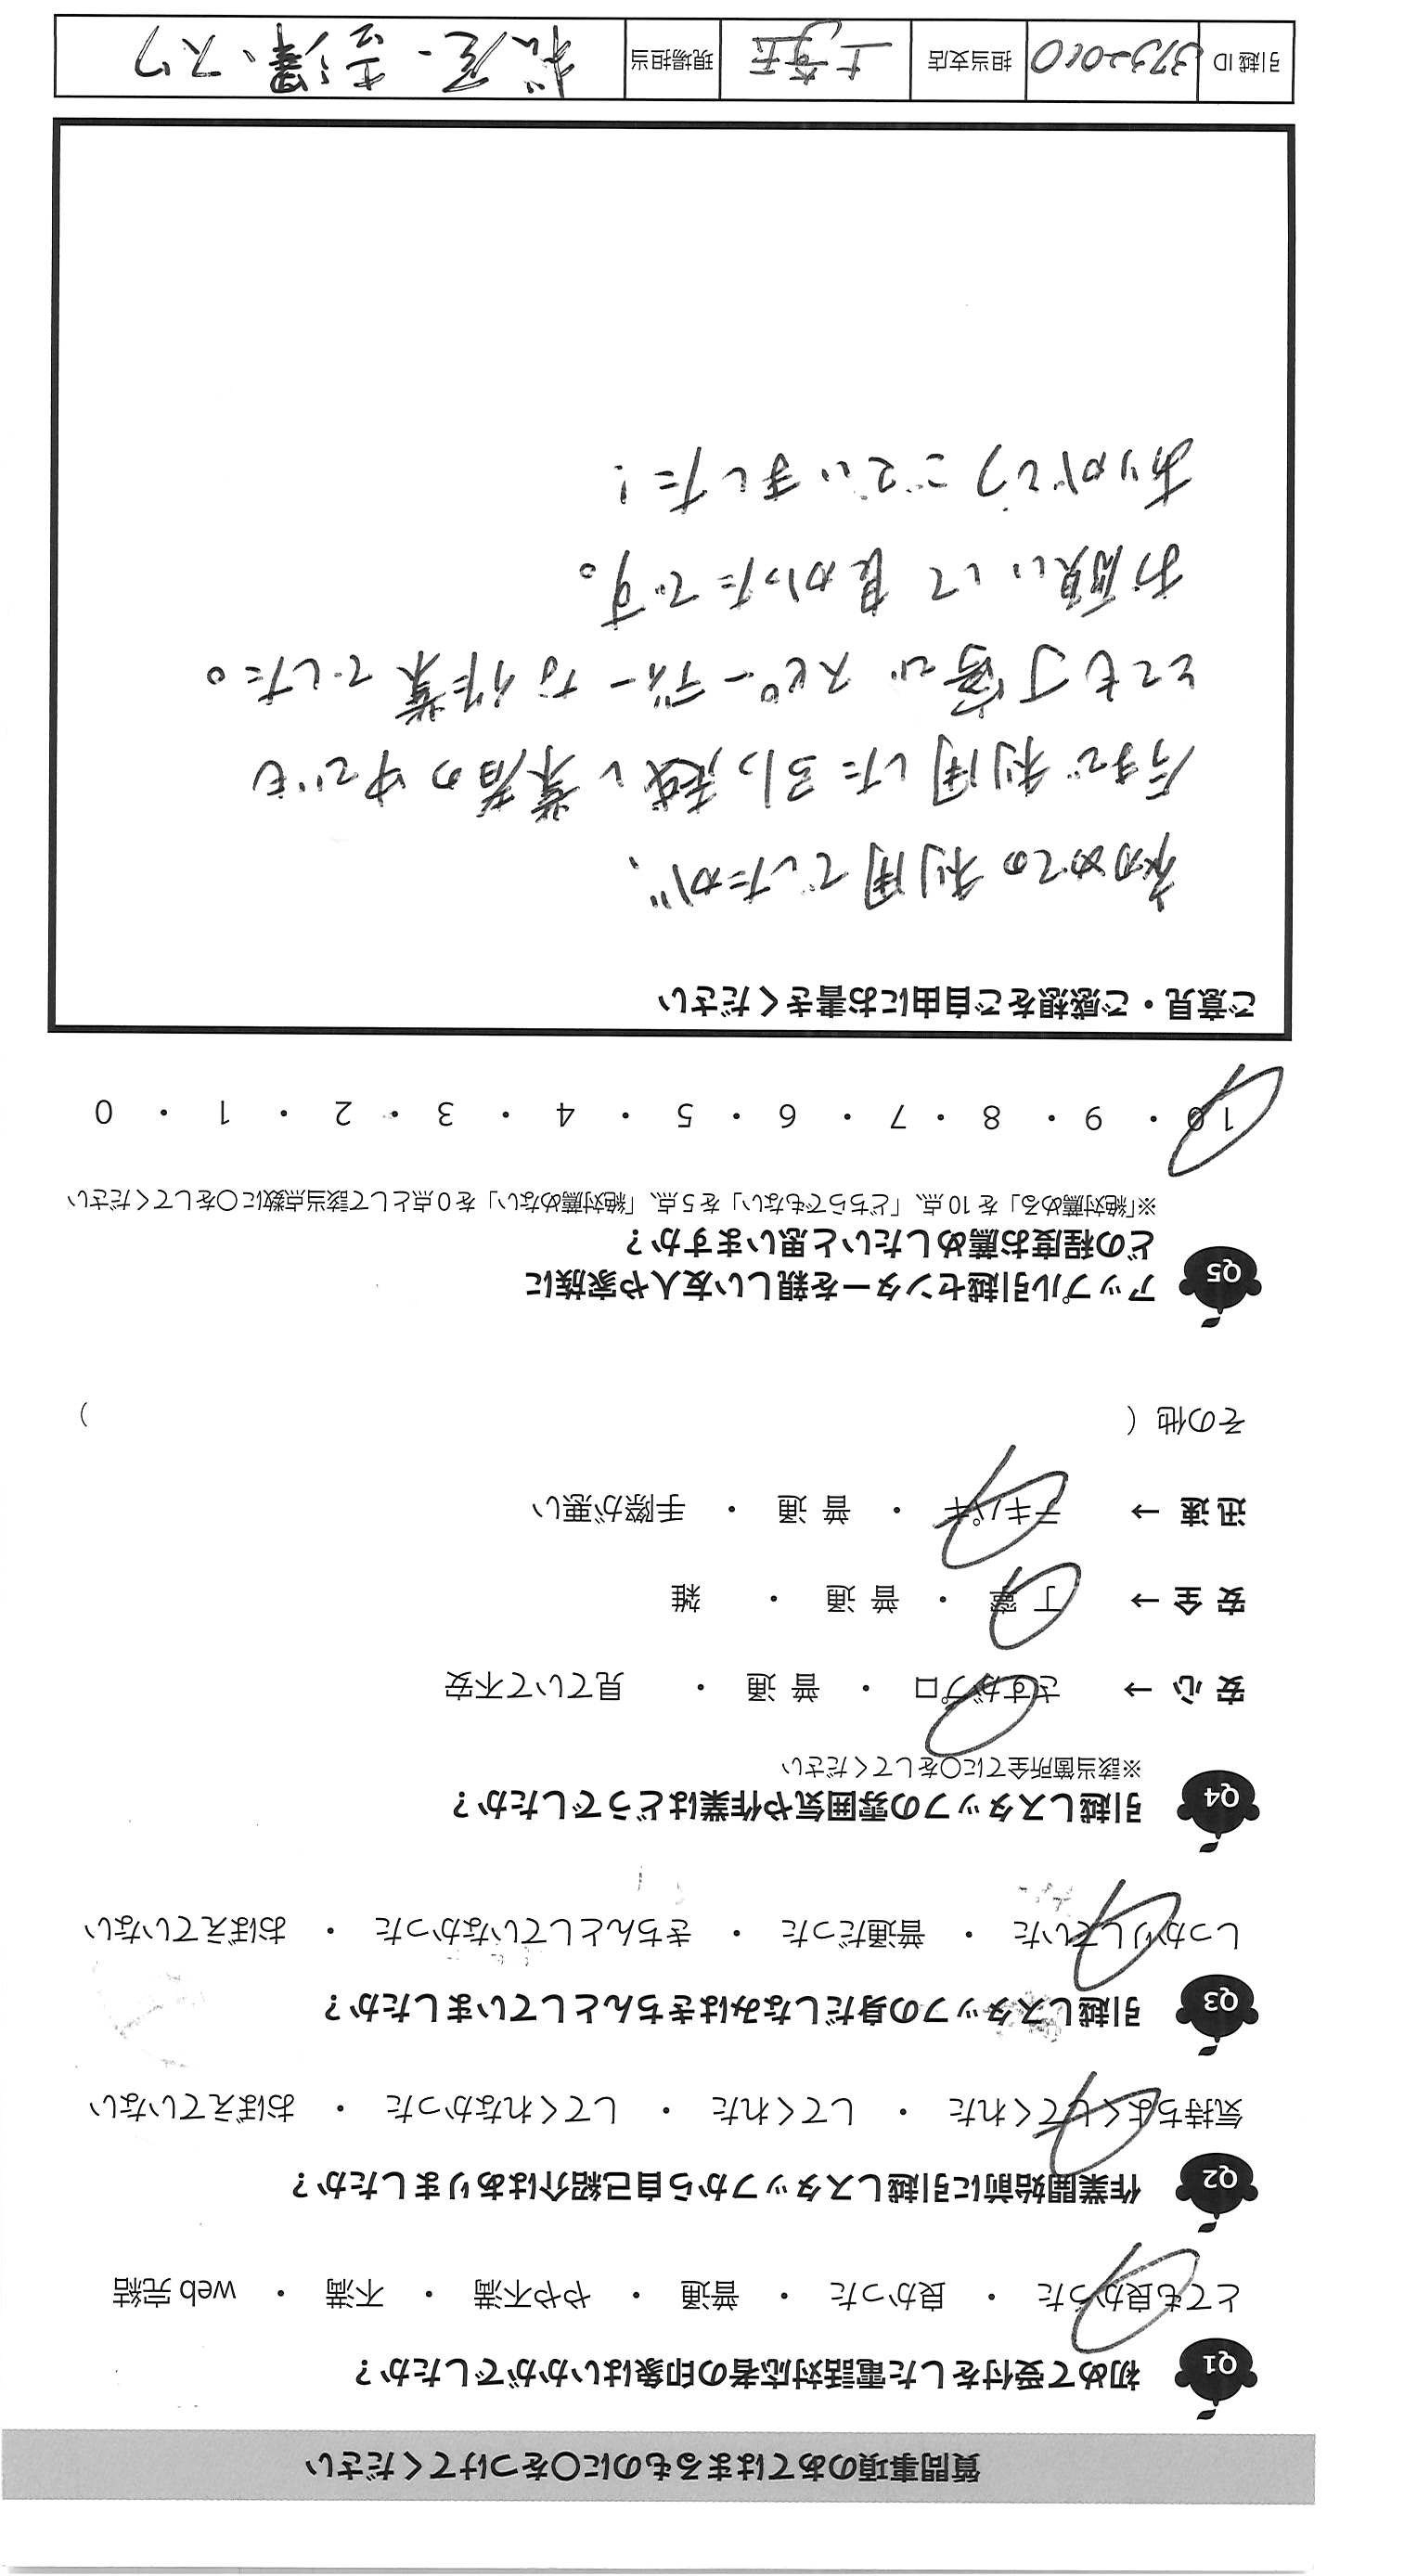 質問事項のあてはまるものに○をつけてください
Q1 初めて受付をした電話対応者の印象はいかがでしたか？
とても良かった ・ 良かった ・ 普通 ・ やや不満 ・ 不満 ・ web 完結
Q2 作業開始前に引越しスタッフから自己紹介はありましたか？
気持ちよくしてくれた ・ してくれた ・ してくれなかった ・ おぼえていない
Q3 引越しスタッフの身だしなみはきちんとしていましたか？
しっかりしていた ・ 普通だった ・ きちんとしていなかった ・ おぼえていない
Q4 引越しスタッフの雰囲気や作業はどうでしたか？
※該当箇所全てに○をしてください
安 心 → さすがプロ ・ 普 通 ・ 見ていて不安
安 全 → 丁 寧 ・ 普 通 ・ 雑
迅 速 → テキパキ ・ 普 通 ・ 手際が悪い
その他（ ）
Q5 アップル引越センターを親しい友人や家族に
どの程度お薦めしたいと思いますか？
※「絶対薦める」を 10 点、「どちらでもない」を 5 点、「絶対薦めない」を 0 点として該当点数に○をしてください
10 ・ 9 ・ 8 ・ 7 ・ 6 ・ 5 ・ 4 ・ 3 ・ 2 ・ 1 ・ 0
ご意見・ご感想をご自由にお書きください
初めての利用でしたが、
今まで利用した引っ越し業者の中でも
とても丁寧でスピーディーな作業でした。
お願いして良かったです。
ありがとうございました！
引越 ID 3732010 担当支店 現場担当 松尾、